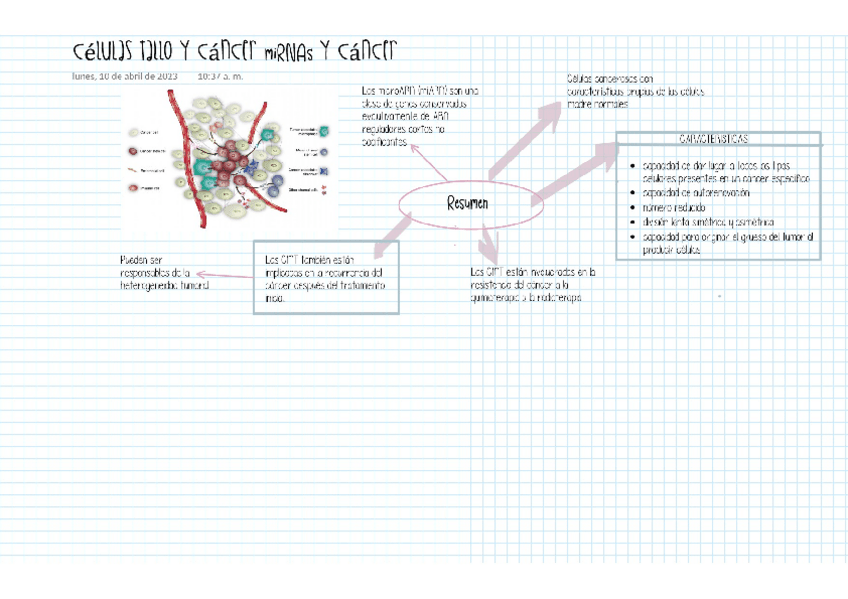 Células Tallo Y Cáncer miRNAs Y Cáncer
lunes, 10 de abril de 2023 10:37 a. m.
Los microARN (miARN) son una
clase de genes conservados
evolutivamente de ARN
reguladores cortos no
codificantes
Células cancerosas con
características propias de las células
madre normales
CARACTERÍSTICAS
• capacidad de dar lugar a todos los tipos
celulares presentes en un cáncer específico
• capacidad de autorenovación
• número reducido
• división lenta simétrica y asimétrica
• capacidad para originar el grueso del tumor al
producir células
Resumen
Pueden ser
responsables de la
heterogeneidad tumoral
Las CMT también están
implicadas en la recurrencia del
cáncer después del tratamiento
inicial.
Las CMT están involucradas en la
resistencia del cáncer a la
quimioterapia y la radioterapia
Cancer cell